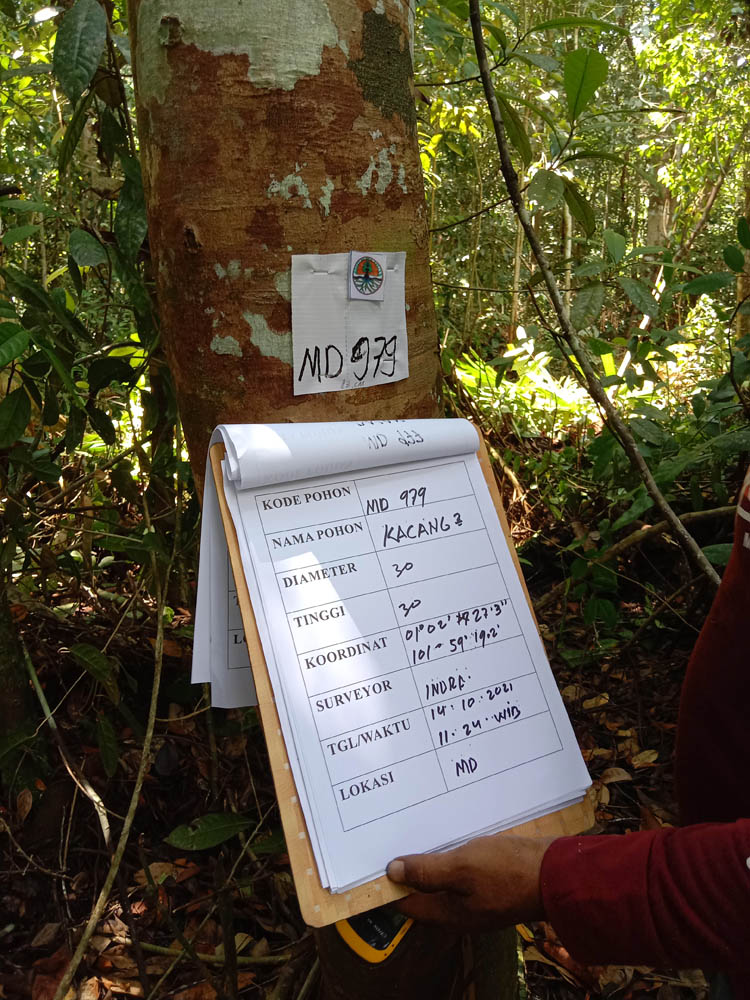 MD 979
KODE POHON MD 979
NAMA POHON KACANG2
DIAMETER 30
TINGGI 30
KOORDINAT 01° 02' 27.3"
101° 59' 19.2'
SURVEYOR INDRA.
TGL/WAKTU 14.10.2021
11.24.WIB
LOKASI MD